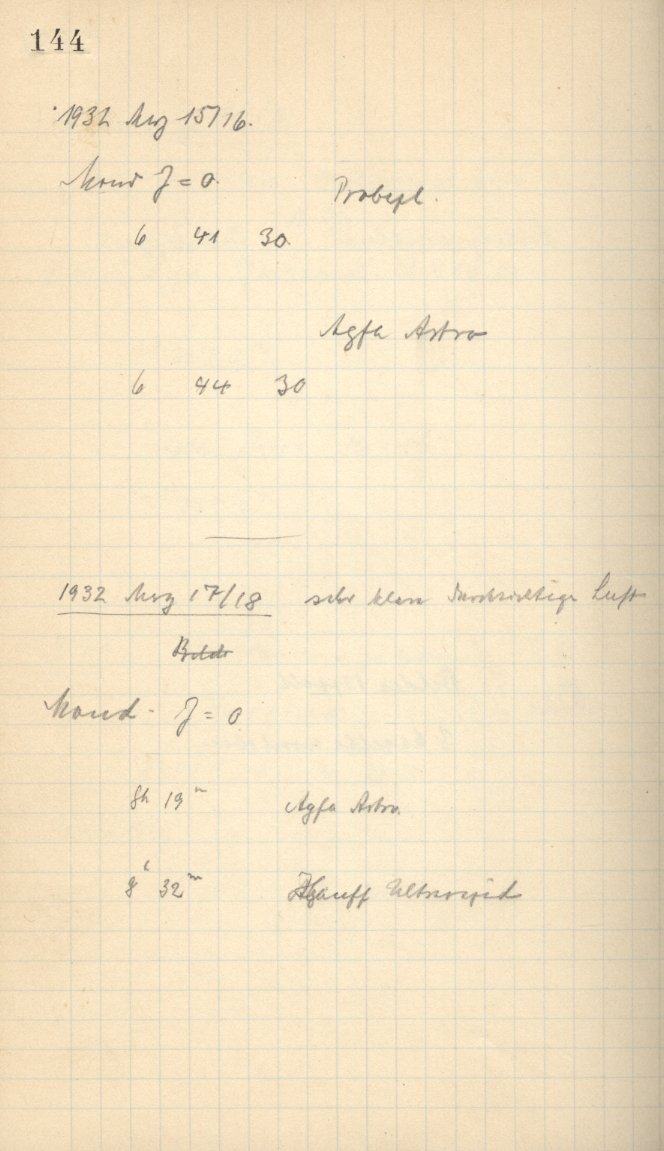 144
1932 Merz 15/16.
Mond J = 0.
Probepl.
6 41 30.
Agfa Astro
6 44 30
1932 Merz 17/18 sehr klare durchsichtige Luft
Bilder
Mond - J = 0
8h 19m
Agfa Astro.
8h 32m
Hauff Ultrarapid